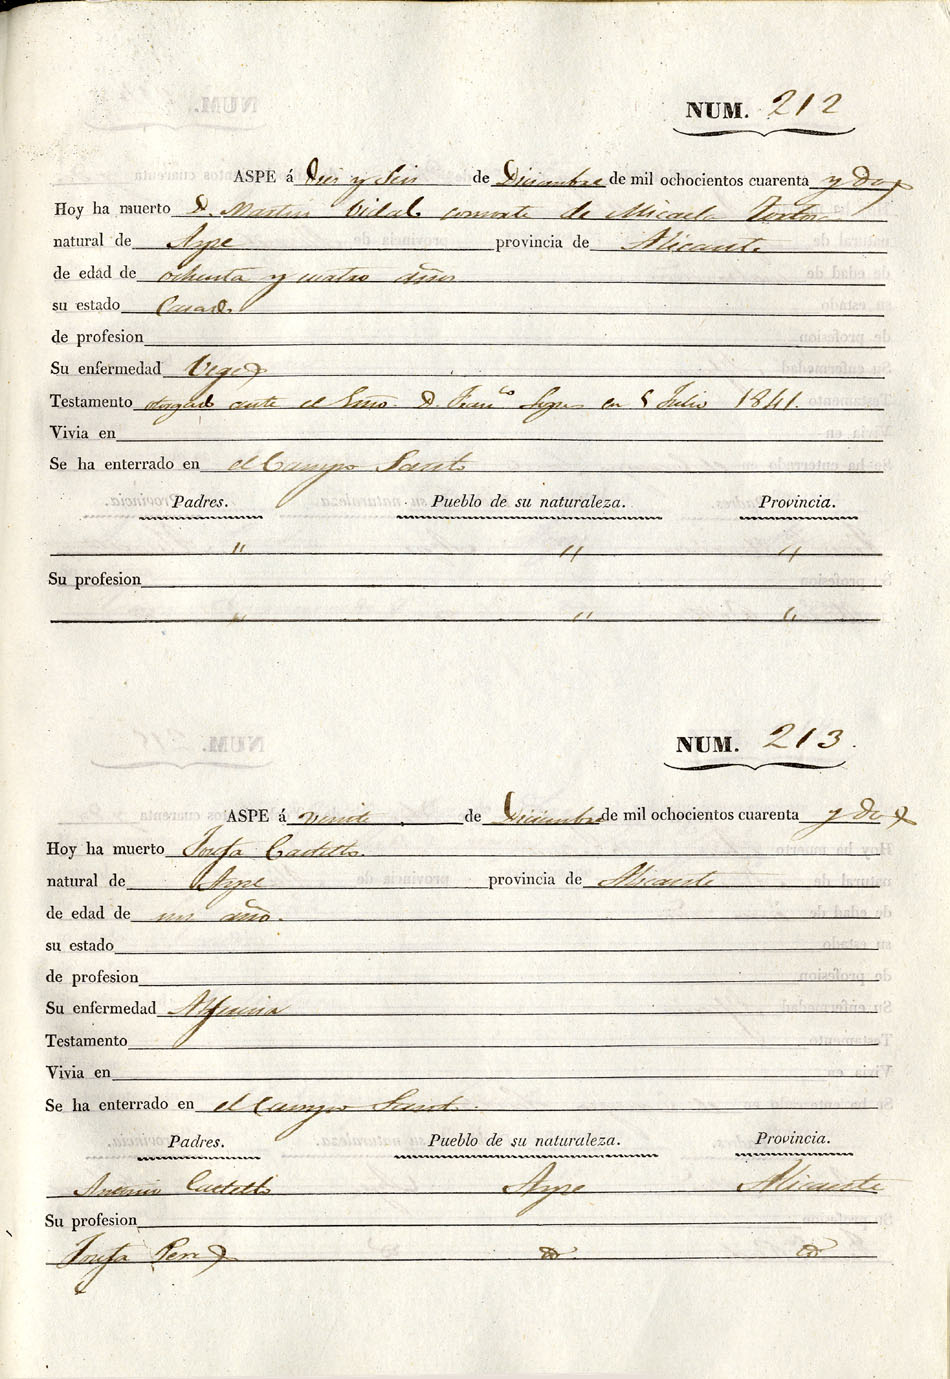 NUM. 212
ASPE á Dies y Seis de Diciembre de mil ochocientos cuarenta y Dos
Hoy ha muerto D. Martin Vidal consorte de Micaela
natural de Aspe provincia de Alicante
de edad de ochenta y cuatro años
su estado Casado
de profesion
Su enfermedad Vegez
Testamento otorgado ante el Esño. D. Franco. en 5 Julio 1841.
Vivia en
Se ha enterrado en el Campo Santo
Padres. Pueblo de su naturaleza. Provincia.
" " "
Su profesion
" " "
NUM. 213.
ASPE á veinte de Diciembre de mil ochocientos cuarenta y Dos
Hoy ha muerto Josefa Castello.
natural de Aspe provincia de Alicante
de edad de un año.
su estado
de profesion
Su enfermedad Alferecia
Testamento
Vivia en
Se ha enterrado en el Campo Santo.
Padres. Pueblo de su naturaleza. Provincia.
Antonio Castello Aspe Alicante
Su profesion
Josefa Perez